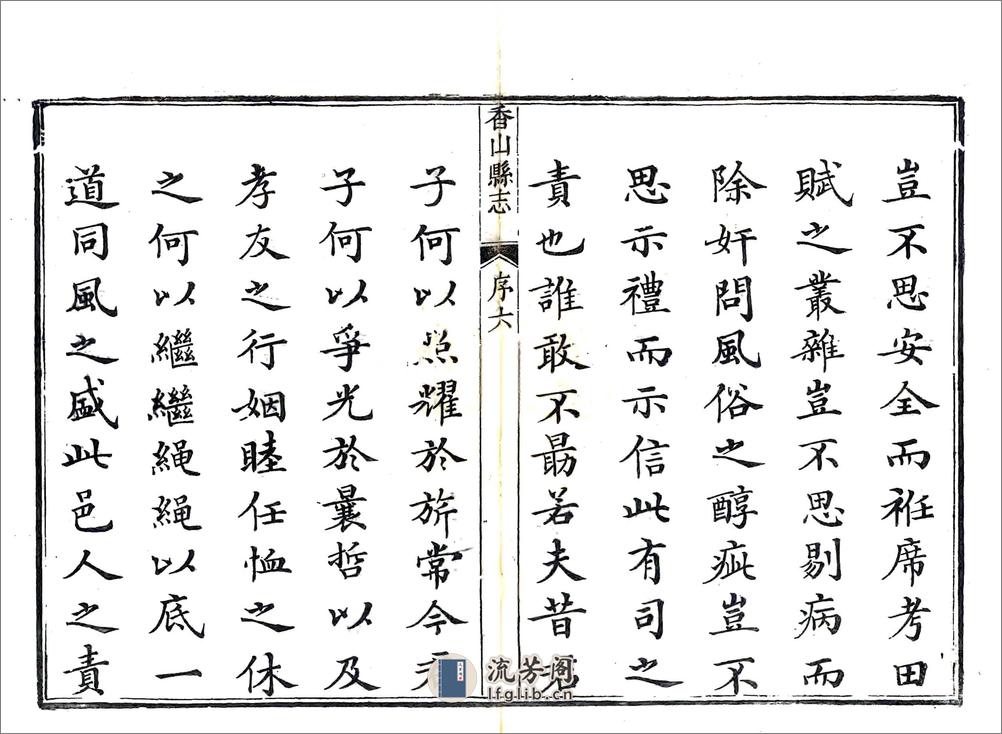 豈不思安全而袵席考田
賦之叢雜豈不思剔病而
除奸問風俗之醇疵豈不
思示禮而示信此有司之
責也誰敢不勗若夫昔
香山縣志 序六
子何以照耀於旂常今
子何以爭光於曩哲以及
孝友之行姻睦任恤之休
之何以繼繼繩繩以底一
道同風之盛此邑人之責
流芳阁
lfglib.cn